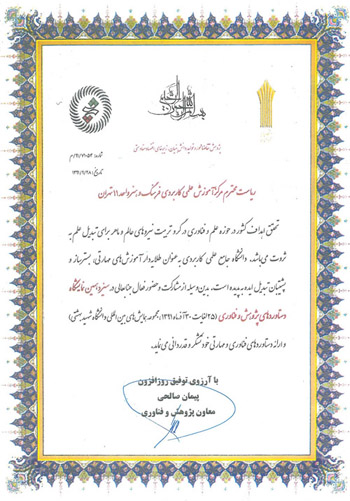 شماره: ۲۱/۷۰۵۴/م
تاریخ: ۱۳۹۱/۹/۲۸
ریاست محترم مرکز آموزش علمی کاربردی فرهنگ و هنر واحد ۱۱ تهران
تحقق اهداف کشور در حوزه علم و فناوری در گرو تربیت نیروهای عالم و ماهر برای تبدیل علم به
ثروت می‌باشد. دانشگاه جامع علمی کاربردی به عنوان طلایه‌دار آموزش‌های مهارتی، بسترساز و
پشتیبان تبدیل ایده به پدیده است. بدین وسیله از مشارکت و حضور فعال جنابعالی در سیزدهمین نمایشگاه
دستاوردهای پژوهش و فناوری (۲۵ لغایت ۳۰ آذرماه ۱۳۹۱، مجموعه همایش‌های بین المللی دانشگاه شهید بهشتی)
و ارائه دستاوردهای فناوری و مهارتی خود تشکر و قدردانی می‌نماید.
با آرزوی توفیق روزافزون
پیمان صالحی
معاون پژوهش و فناوری